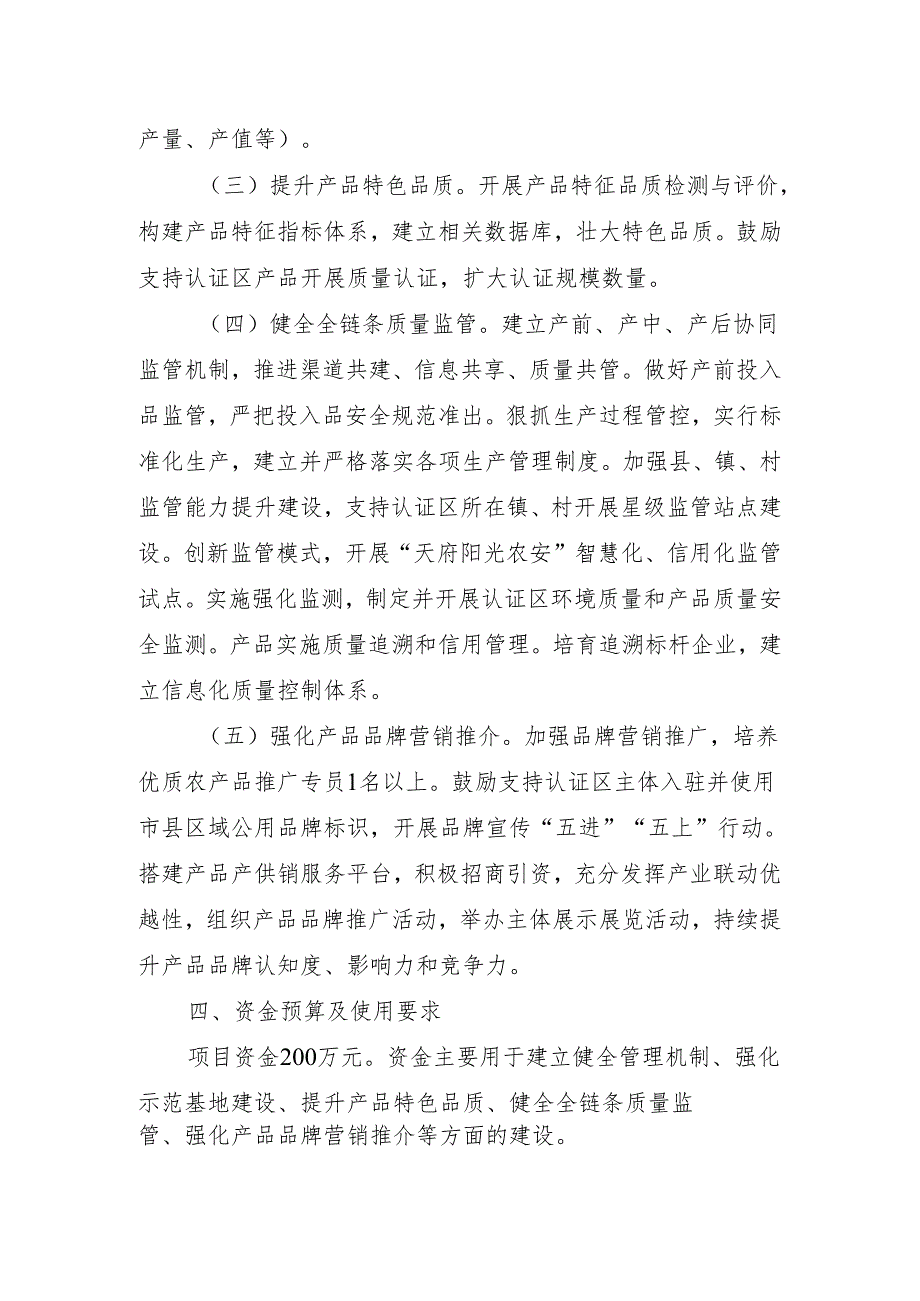 产量、产值等）。
（三）提升产品特色品质。开展产品特征品质检测与评价，
构建产品特征指标体系，建立相关数据库，壮大特色品质。鼓励
支持认证区产品开展质量认证，扩大认证规模数量。
（四）健全全链条质量监管。建立产前、产中、产后协同
监管机制，推进渠道共建、信息共享、质量共管。做好产前投入
品监管，严把投入品安全规范准出。狠抓生产过程管控，实行标
准化生产，建立并严格落实各项生产管理制度。加强县、镇、村
监管能力提升建设，支持认证区所在镇、村开展星级监管站点建
设。创新监管模式，开展“天府阳光农安”智慧化、信用化监管
试点。实施强化监测，制定并开展认证区环境质量和产品质量安
全监测。产品实施质量追溯和信用管理。培育追溯标杆企业，建
立信息化质量控制体系。
（五）强化产品品牌营销推介。加强品牌营销推广，培养
优质农产品推广专员1名以上。鼓励支持认证区主体入驻并使用
市县区域公用品牌标识，开展品牌宣传“五进”“五上”行动。
搭建产品产供销服务平台，积极招商引资，充分发挥产业联动优
越性，组织产品品牌推广活动，举办主体展示展览活动，持续提
升产品品牌认知度、影响力和竞争力。
四、资金预算及使用要求
项目资金200万元。资金主要用于建立健全管理机制、强化
示范基地建设、提升产品特色品质、健全全链条质量监
管、强化产品品牌营销推介等方面的建设。